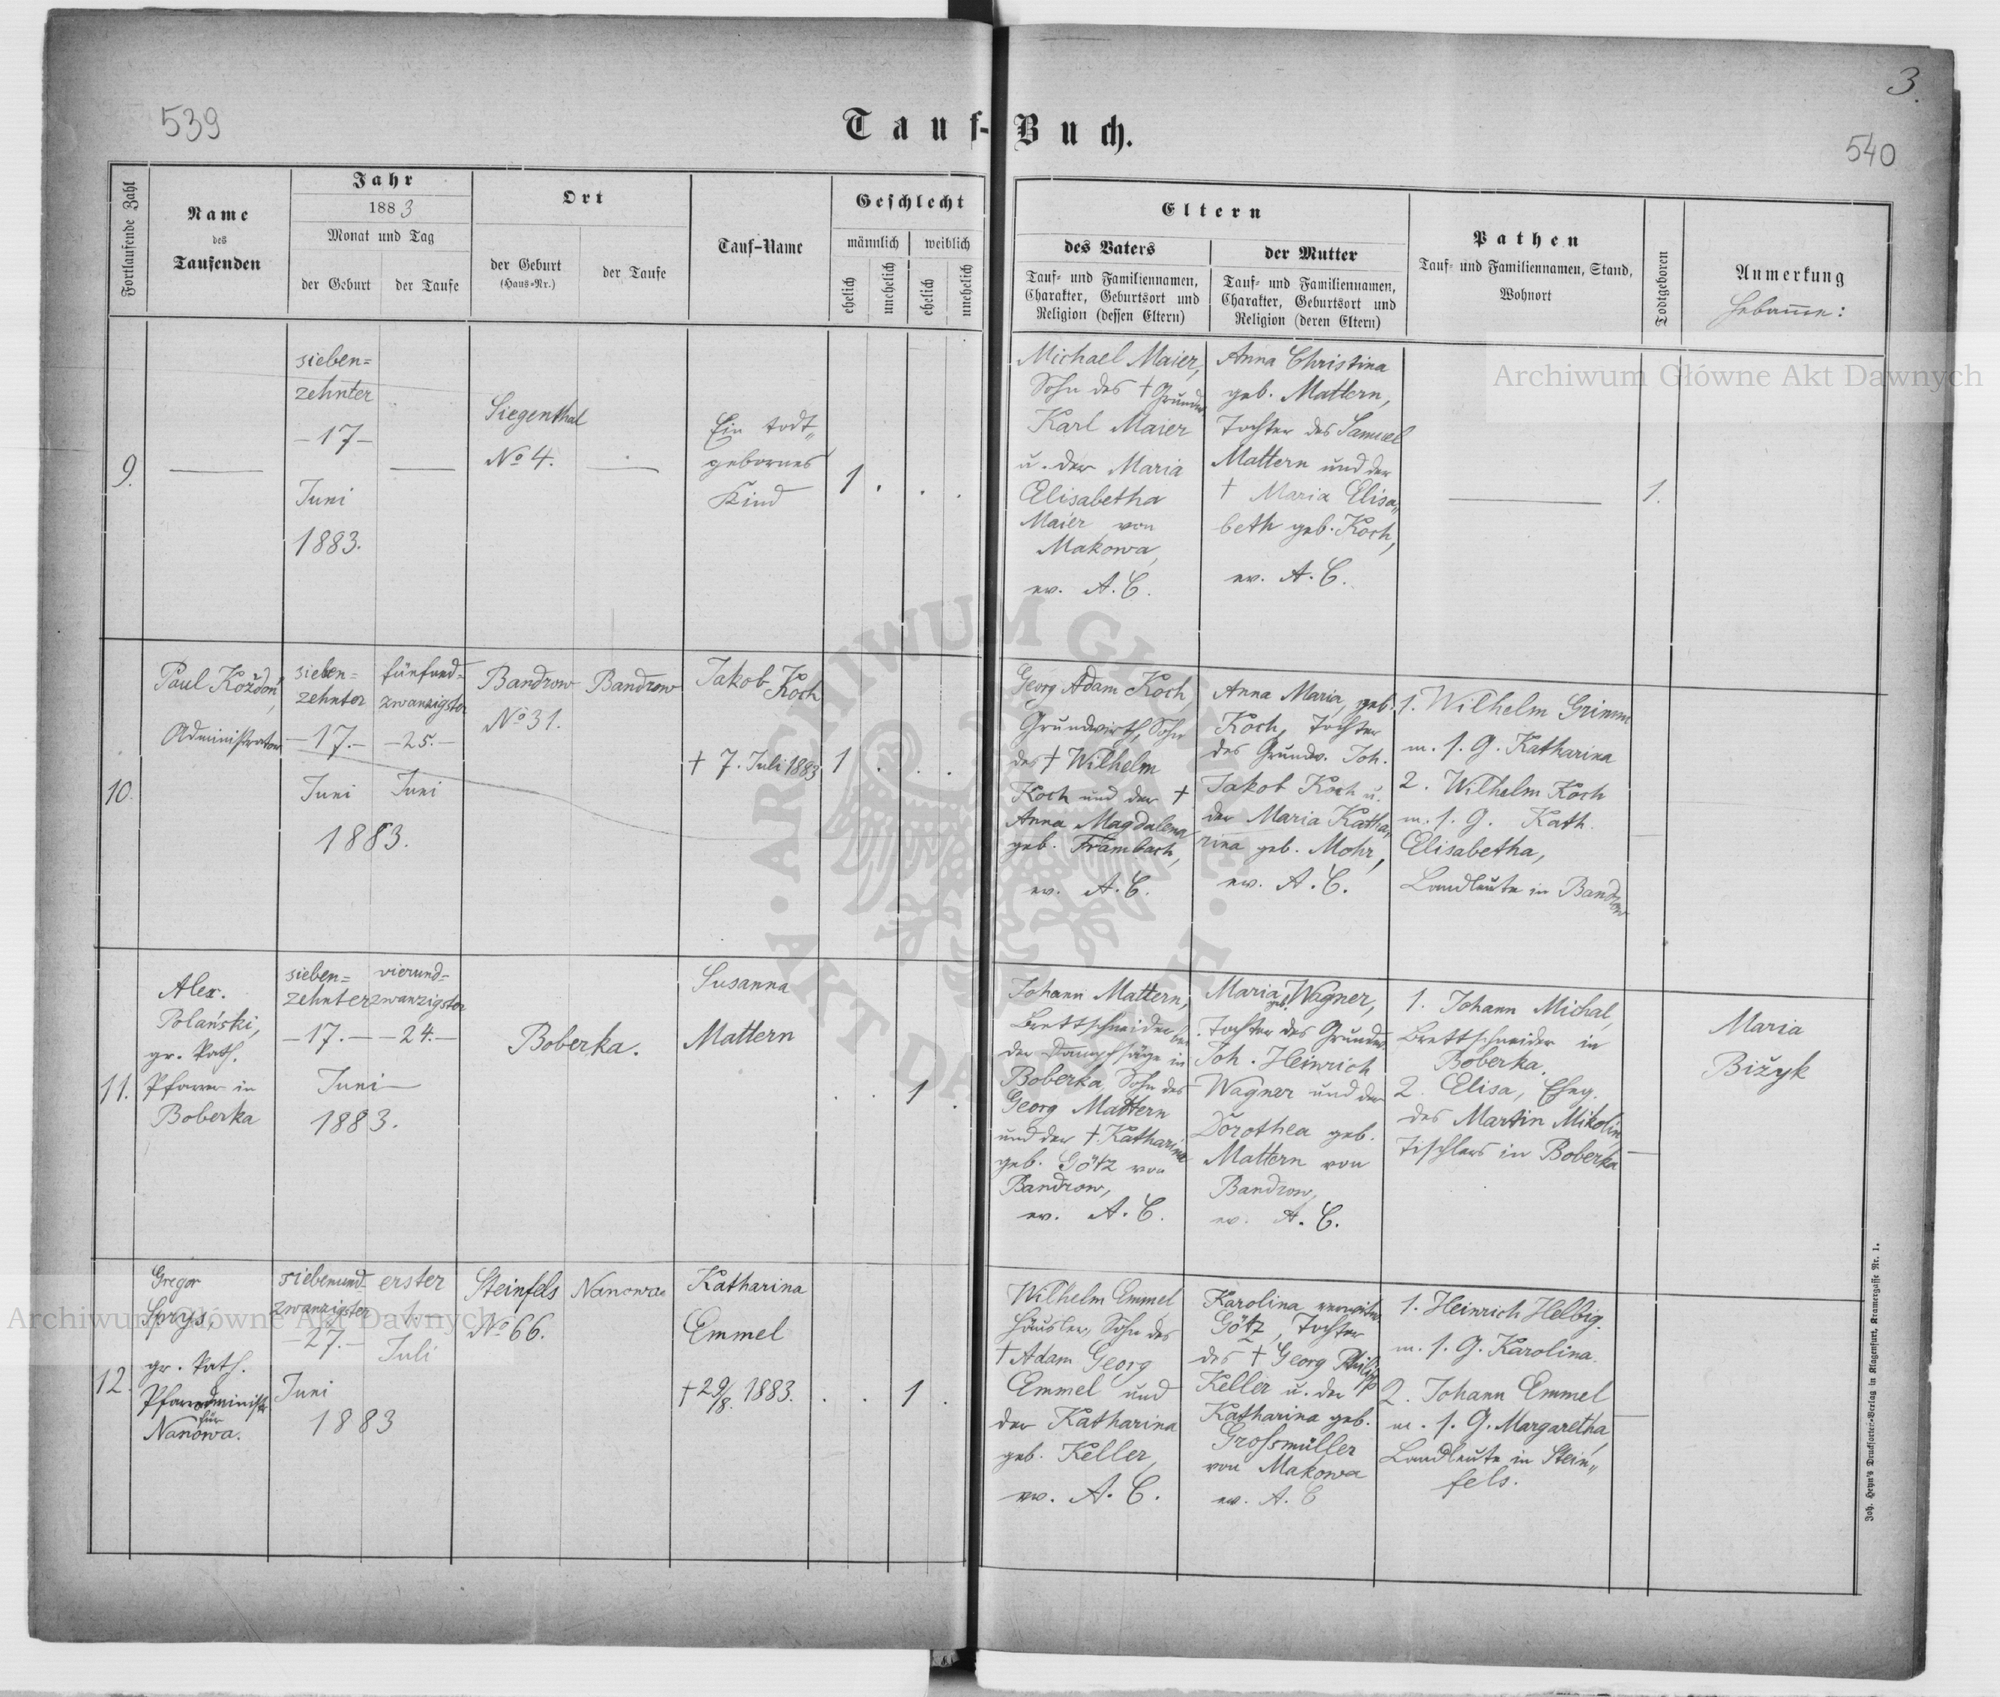 3.
539
540
Tauf-Buch.
Fortlaufende Zahl
Name
des
Taufenden
Jahr
1883
Monat und Tag
der Geburt
der Taufe
Ort
der Geburt
(Haus-Nr.)
der Taufe
Tauf-Name
Geschlecht
männlich
weiblich
ehelich
unehelich
ehelich
unehelich
Eltern
des Vaters
Tauf- und Familiennamen,
Charakter, Geburtsort und
Religion (dessen Eltern)
der Mutter
Tauf- und Familiennamen,
Charakter, Geburtsort und
Religion (deren Eltern)
Pathen
Tauf- und Familiennamen, Stand,
Wohnort
Todtgeboren
Anmerkung
Hebamme:
9.
sieben=
zehnter
-17-
Juni
1883.
Siegenthal
No 4.
Ein todt„
gebornes
Kind
1 . . .
Michael Maier,
Sohn des † Grundw.
Karl Maier
u. der Maria
Elisabetha
Maier von
Makowa,
ev. A. C.
Anna Christina
geb. Mattern,
Tochter des Samuel
Mattern und der
† Maria Elisa„
beth geb. Koch,
ev. A. C.
1.
10.
Paul Koždoń,
Administrator
sieben=
zehnter
-17.-
Juni
fünfund=
zwanzigster
-25.-
Juni
1883.
Bandrow
No 31.
Bandrow
Jakob Koch
† 7. Juli 1883
1 . . .
Georg Adam Koch,
Grundwirth, Sohn
des † Wilhelm
Koch und der †
Anna Magdalena
geb. Frambach,
ev. A. C.
Anna Maria, geb.
Koch, Tochter
des Grundw. Joh.
Jakob Koch u.
der Maria Katha„
rina geb. Mohr,
ev. A. C.
1. Wilhelm Grimm
m. s. G. Katharina
2. Wilhelm Koch
m. s. G. Kath.
Elisabetha,
Landleute in Bandrow
11.
Alex.
Polański,
gr. kath.
Pfarrer in
Boberka
sieben=
zehnter
-17.-
vierund=
zwanzigster
-24.-
Juni
1883.
Boberka.
Susanna
Mattern
. . 1 .
Johann Mattern,
Brettschneider bei
der Dampfsäge in
Boberka, Sohn des
Georg Mattern
und der †. Katharina
geb. Götz von
Bandrow,
ev. A. C.
Maria geb. Wagner,
Tochter des Grundw.
Joh. Heinrich
Wagner und der
Dorothea geb.
Mattern von
Bandrow,
ev. A. C.
1. Johann Michal,
Brettschneider in
Boberka.
2. Elisa, Eheg.
des Martin Mikolin,
Tischlers in Boberka
Maria
Bižyk
12.
Gregor
Sprys,
gr. kath.
Pfarradministr.
für
Nanowa.
siebenund=
zwanzigster
-27.-
Juni
erster
1.
Juli
1883
Steinfels
No 66.
Nanowa
Katharina
Emmel
† 29/8. 1883.
. . 1 .
Wilhelm Emmel
Häusler, Sohn des
† Adam Georg
Emmel und
der Katharina
geb. Keller,
ev. A. C.
Karolina verwitw.
Götz, Tochter
des † Georg Philipp
Keller u. der
Katharina geb.
Grossmüller
von Makowa
ev. A. C
1. Heinrich Helbig.
m. s. G. Karolina.
2. Johann Emmel
m. s. G. Margaretha,
Landleute in Stein„
fels.
Joh. Heyn's Drucksorten-Verlag in Klagenfurt, Kramergasse Nr. 1.
Archiwum Główne Akt Dawnych
Archiwum Główne Akt Dawnych